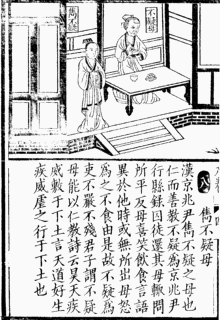 雋不疑
不疑母
八 雋不疑母
漢京兆尹雋不疑之母也
仁而善教不疑為京兆尹
行縣錄囚徒還其母輒問
所平反母喜笑飲食言語
異於他時或無所出母怒
為之不食由是故不疑為
吏不嚴不殘君子謂不疑
母能以仁教詩云昊天疾
威敷于下土言天道好生
疾威虐之行于下土也